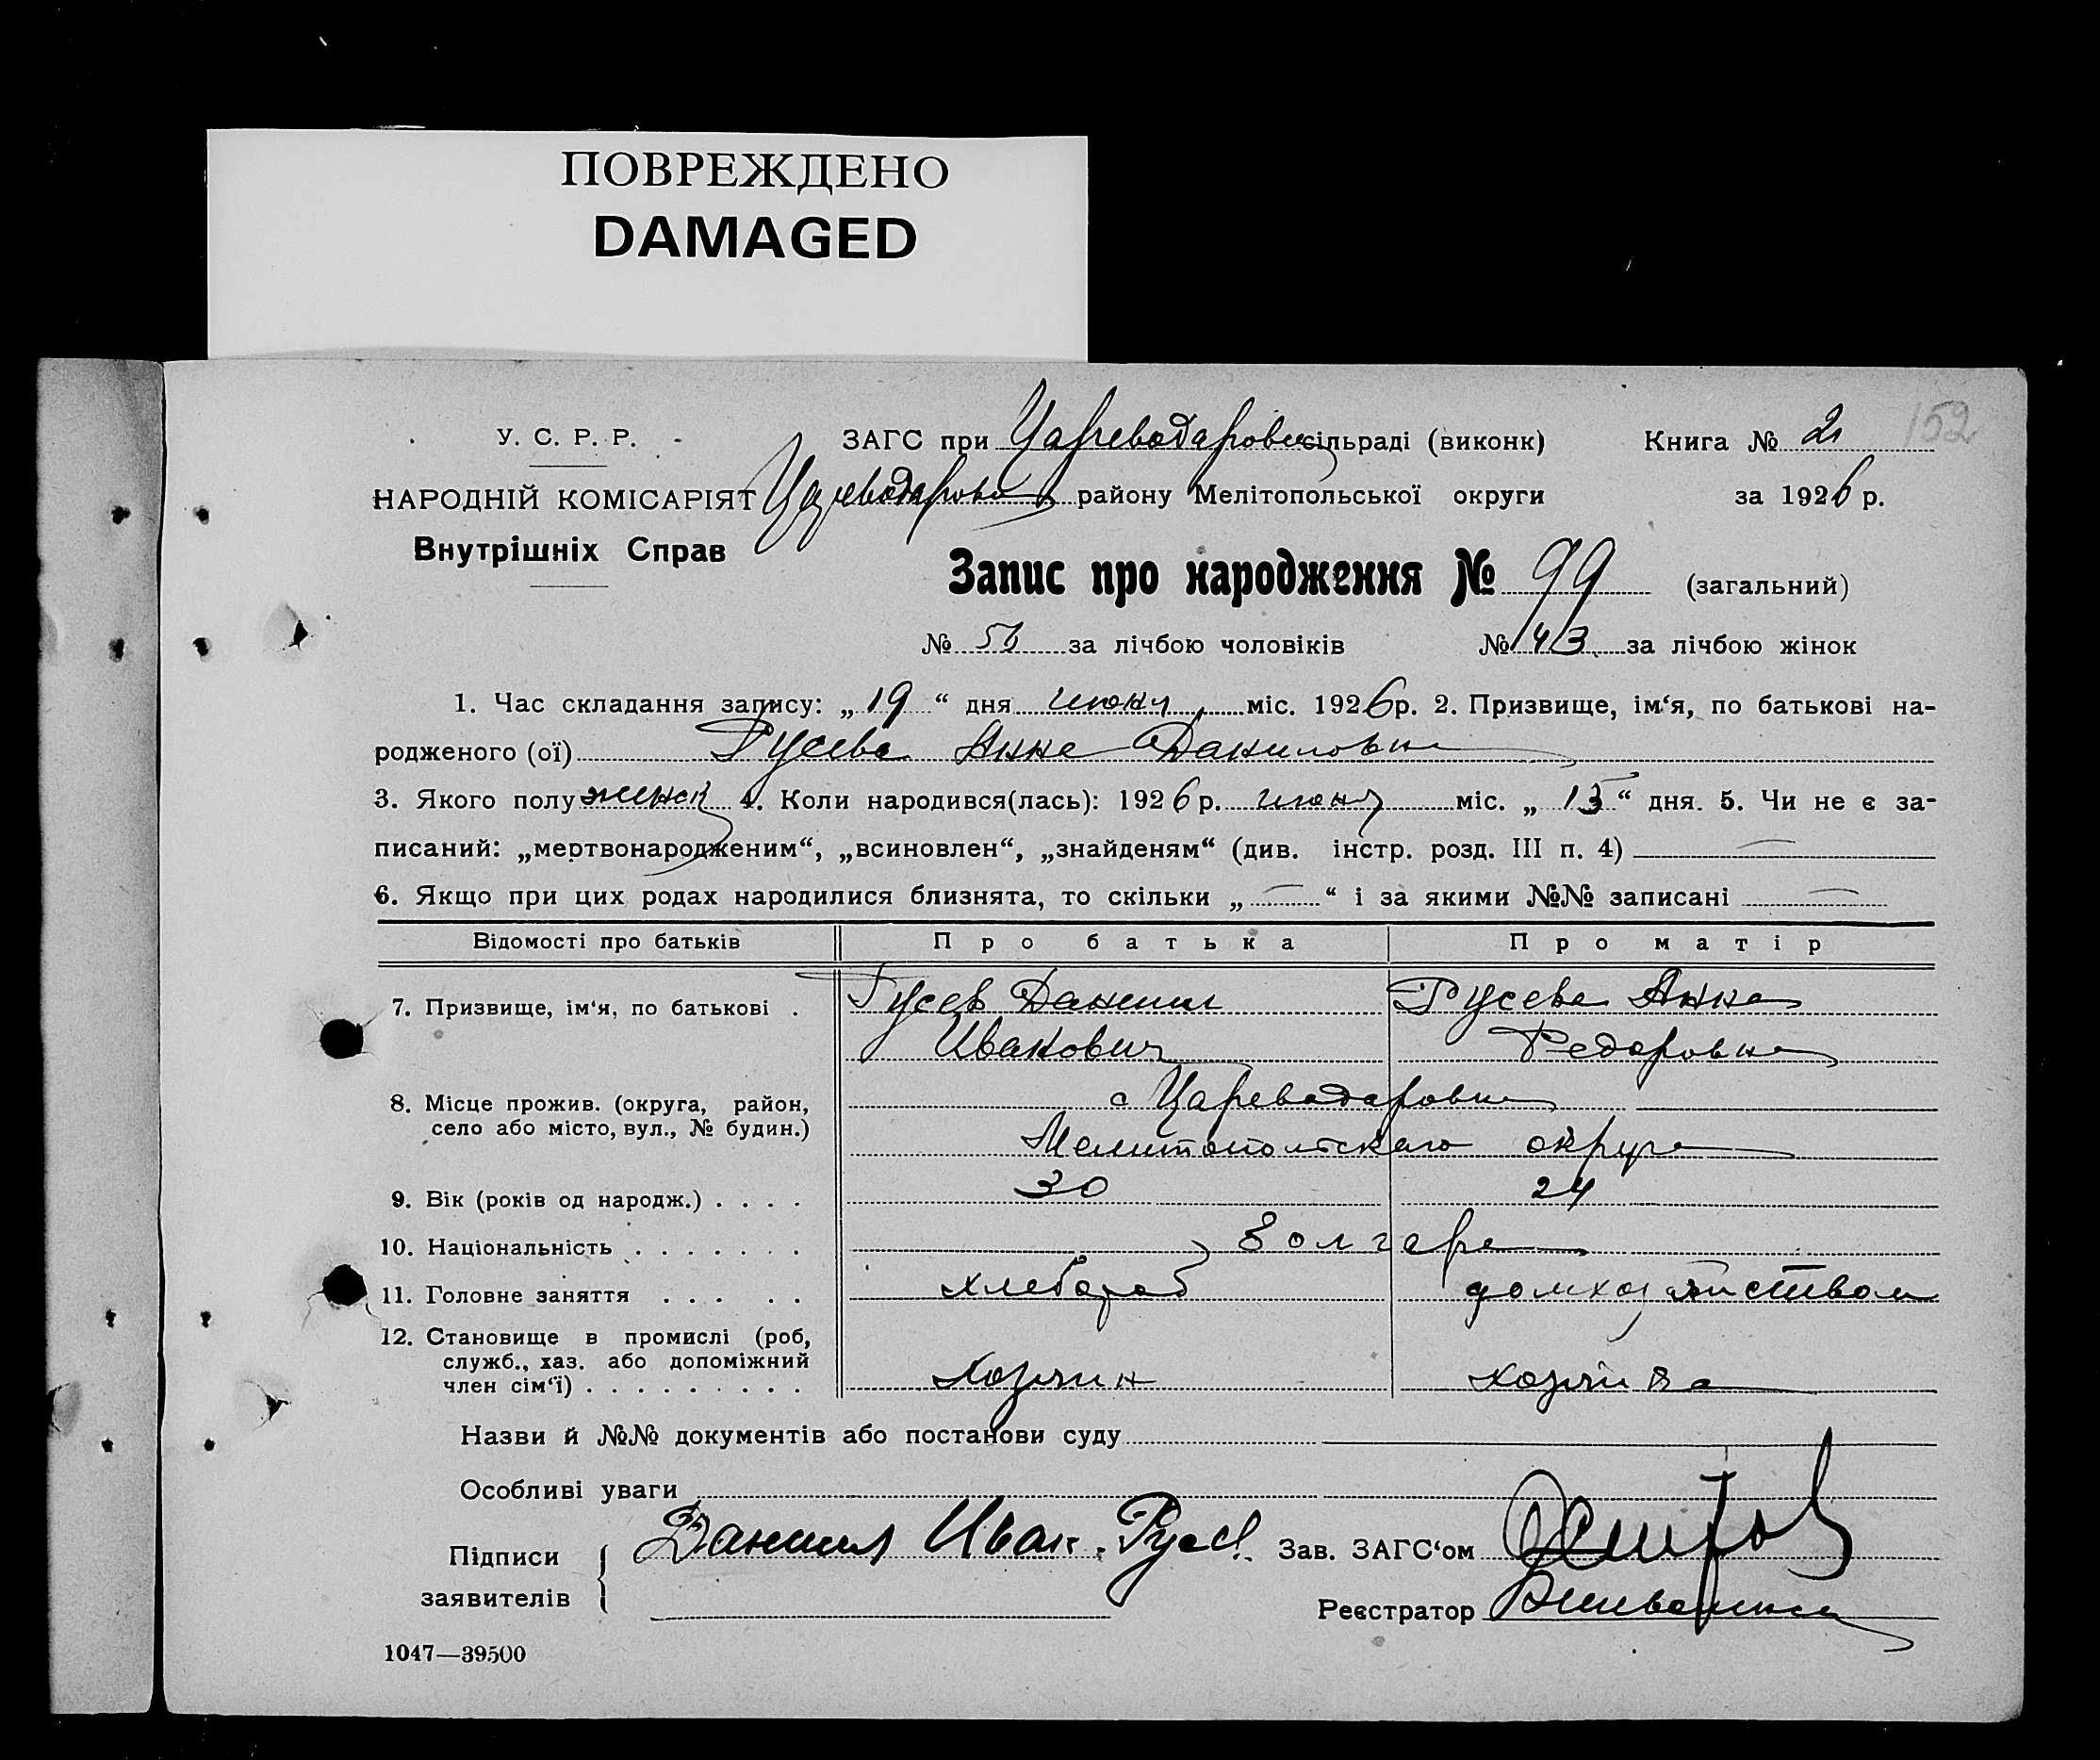 ПОВРЕЖДЕНО
DAMAGED
152
У. С. Р. Р. ЗАГС при Цареводаровск сільраді (виконк) Книга № 2
НАРОДНІЙ КОМІСАРІЯТ Цареводаровск району Мелітопольської округи за 1926 р.
Внутрішніх Справ
Запис про народження № 99 (загальний)
№ 56 за лічбою чоловіків № 43 за лічбою жінок
1. Час складання запису: „19“ дня июня міс. 1926 р. 2. Призвище, ім‘я, по батькові на-
родженого (ої) Гусева Анна Даниловна
3. Якого полу женск 4. Коли народився(лась): 1926 р. июня міс. „13“ дня. 5. Чи не є за-
писаний: „мертвонародженим“, „всиновлен“, „знайденям“ (див. інстр. розд. III п. 4) —
6. Якщо при цих родах народилися близнята, то скільки „—“ і за якими №№ записані —
Відомості про батьків Про батька Про матір
7. Призвище, ім‘я, по батькові . Гусев Даниил Гусева Анна
Иванович Федоровна
8. Місце прожив. (округа, район, с Цареводаровка
село або місто, вул., № будин.) Мелитопольскаго округа
9. Вік (років од народж.) . . . . 30 24
10. Національність . . . . . . . болгаре
11. Головне заняття . . . . . хлебороб домхозяйством
12. Становище в промислі (роб,
служб., хаз. або допоміжний
член сім‘ї) . . . . . . . . . хозяин хозяйка
Назви й №№ документів або постанови суду
Особливі уваги
Підписи Даниил Иван. Гусев. Зав. ЗАГС‘ом
заявителів Реєстратор
1047—39500